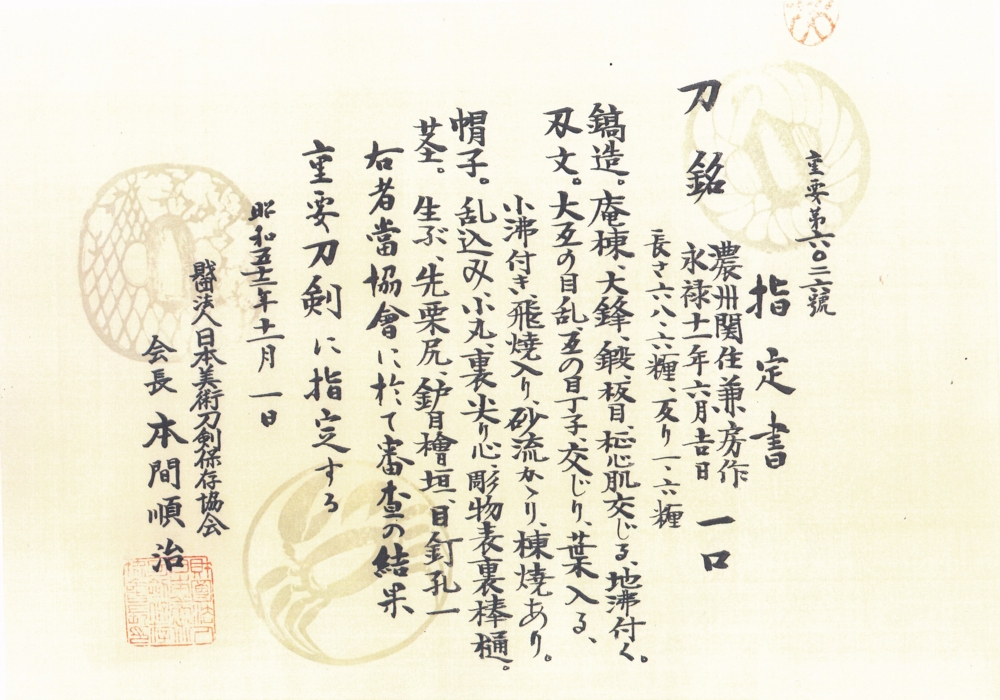 重要第六〇二六號
指定書
刀 銘 濃州関住兼房作 一口
永禄十一年六月吉日
長さ六八・六糎、反り一・六糎
鎬造。庵棟、大鋒、鍛板目、柾心肌交じる、地沸付く。
刄文。大互の目乱、互の目丁子、交じり、葉入る、
小沸付き、飛焼入り、砂流かゝり、棟焼あり。
帽子。乱込み小丸、裏尖り心、彫物表裏棒樋。
茎。生ぶ、先栗尻、鈩目檜垣、目釘孔一
右者當協會に於て審査の結果
重要刀剣に指定する
昭和五十二年十一月一日
財團法人日本美術刀剣保存協会
会長 本間順治